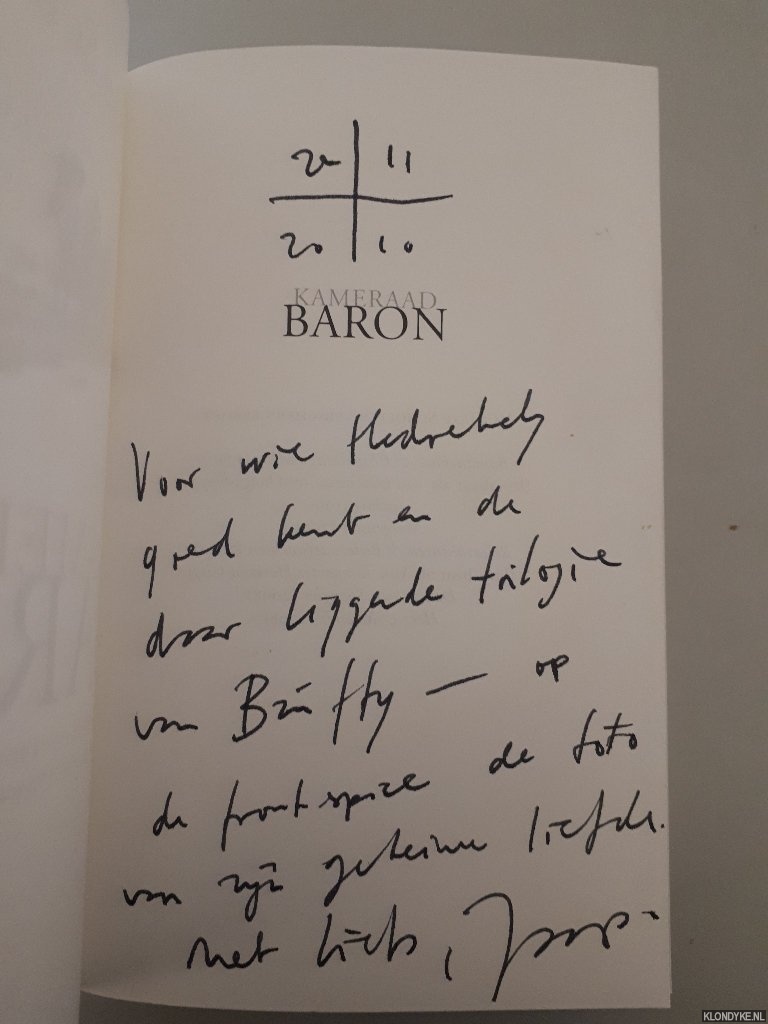 20 | 11
20 | 10
KAMERAAD
BARON
Voor wie
goed kent en de
daar liggende trilogie
van Bánffy — op
de frontspice de foto
van zijn geheime liefde.
Met liefs, Jaap.
KLONDYKE.NL